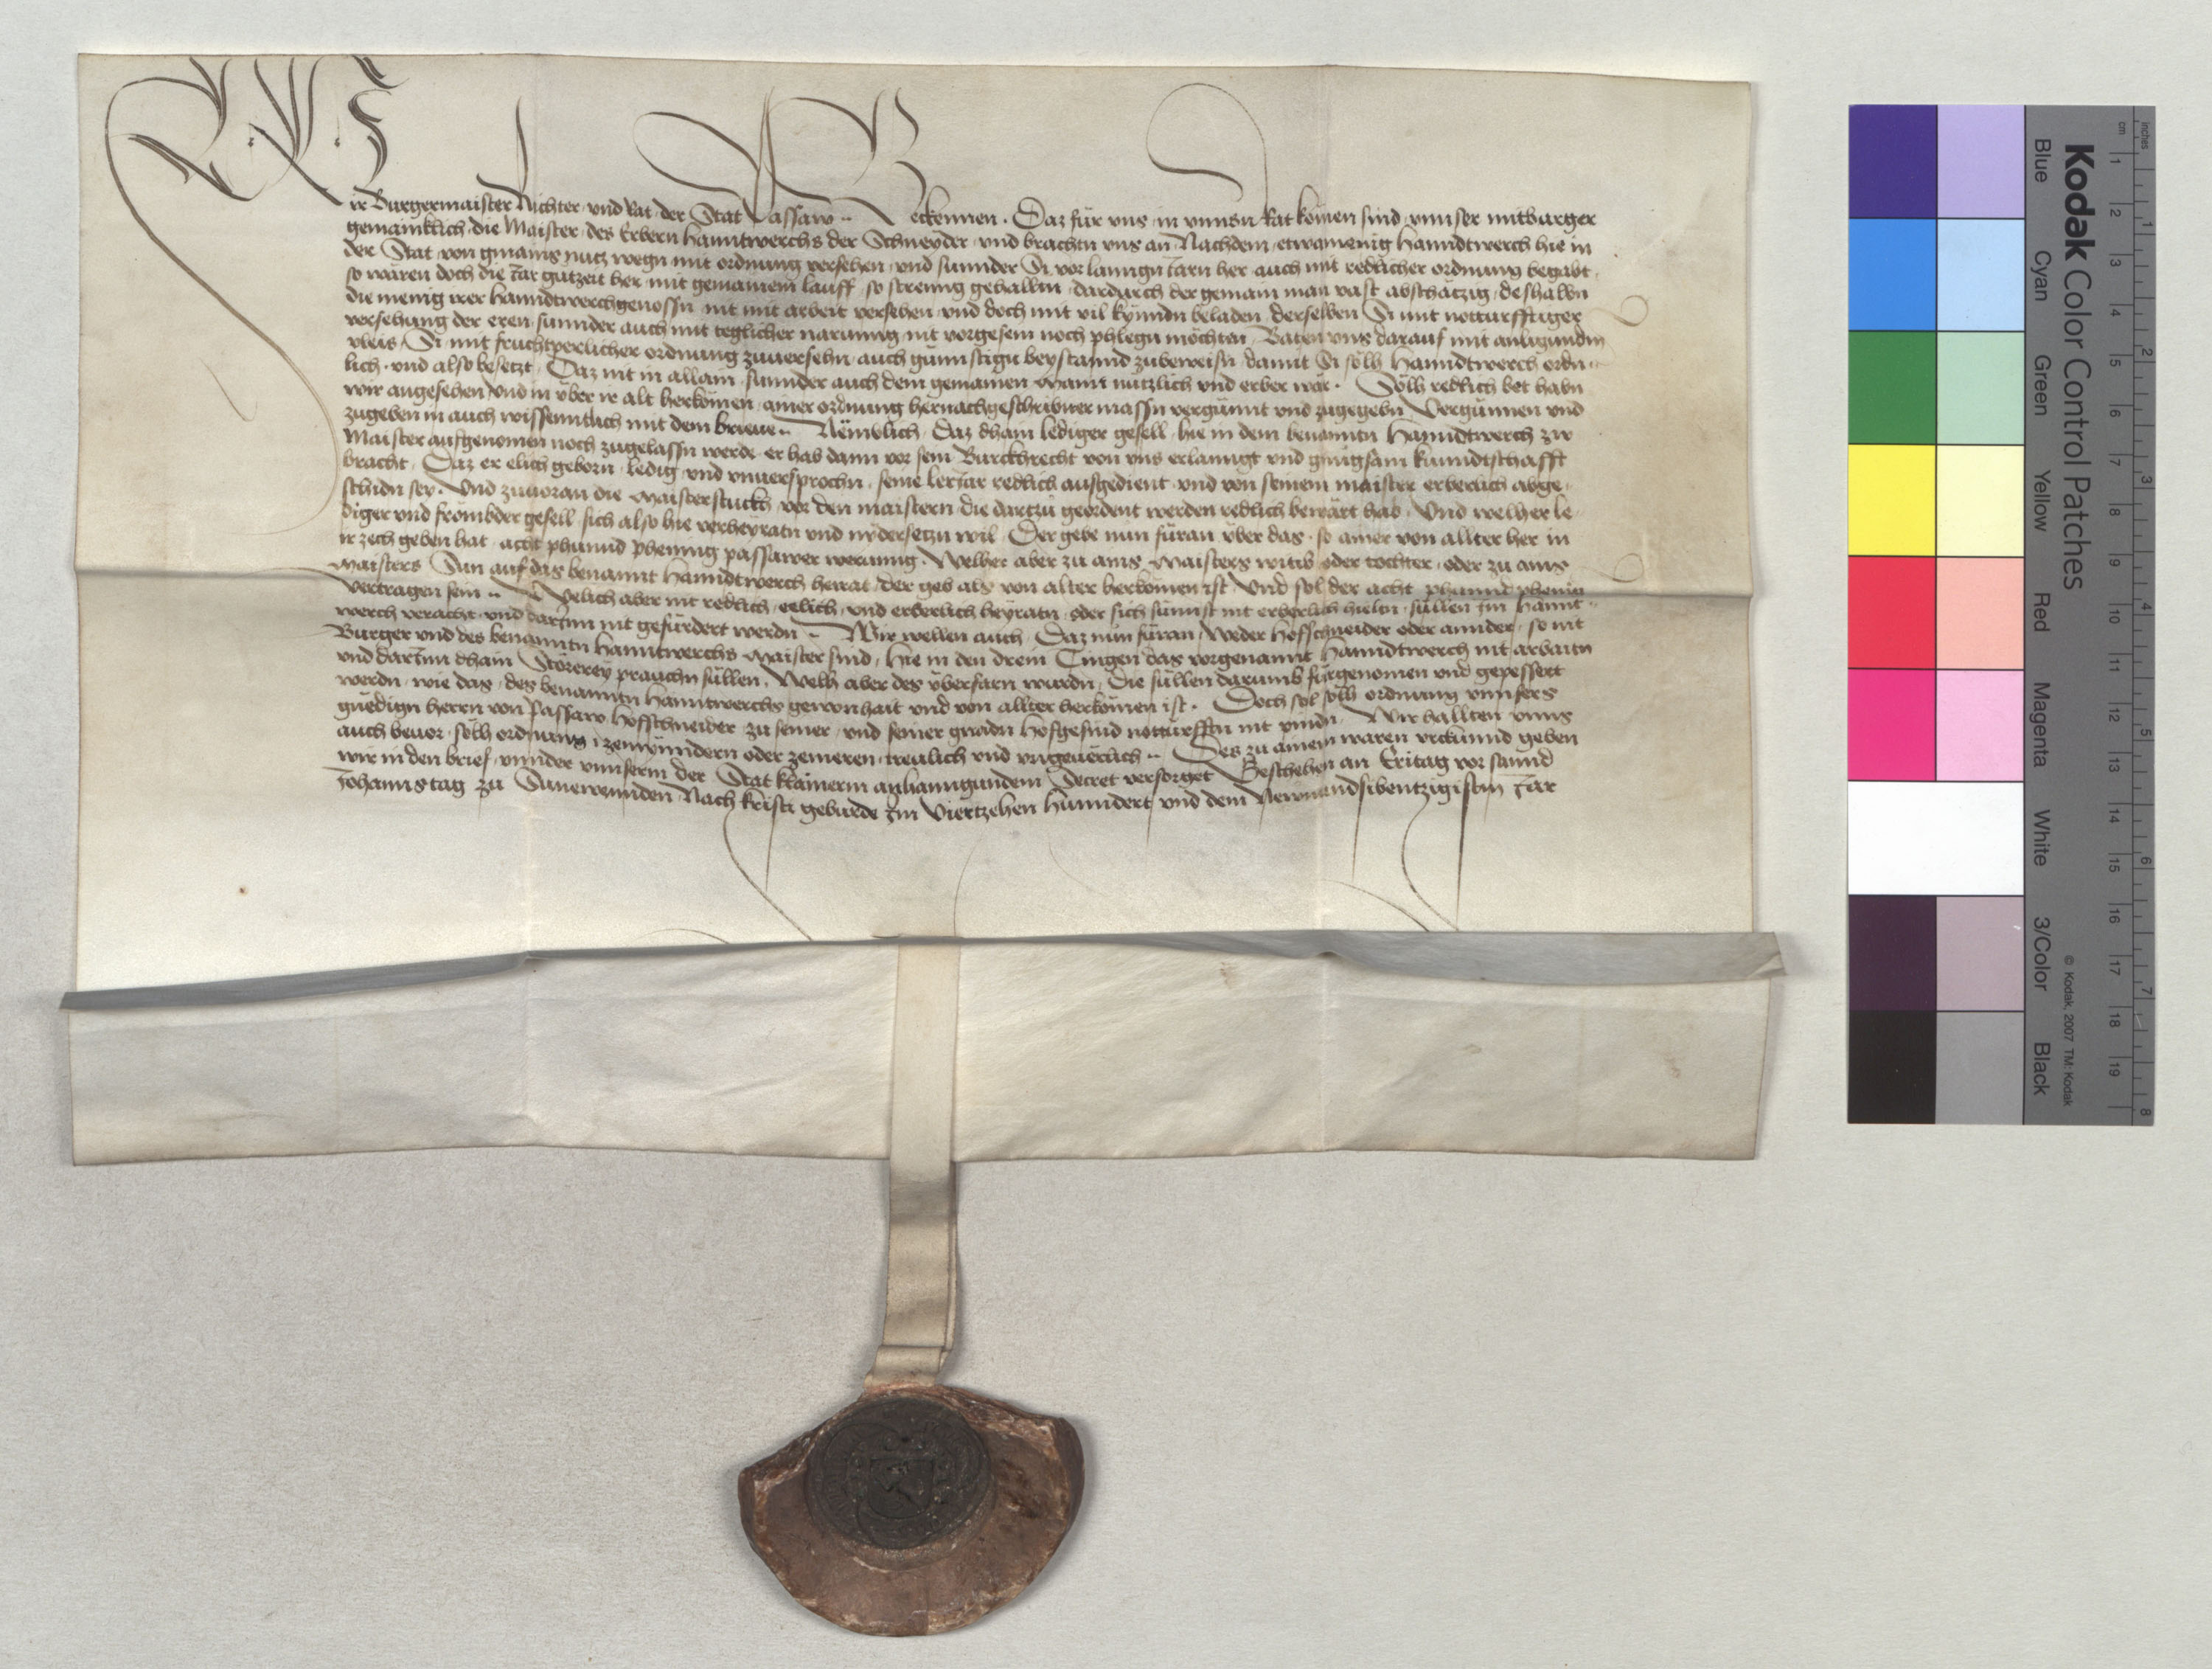 Wir Burgermaister Richter und Rat der Stat Passaw Bekennen. Daz für uns in unnsn Rat kömen sind unnser mitburger
gemainklich die Maister des Erbern Hanntwerchs der Schneyder und brachtn uns an Nachdem etwamenig Hanndtwerch hie in
der Stat von gmains nutz wegn mit ordnung versehen und sunnder Si vor lanngn Jarn her auch mit redlicher ordnung begabt
so wären doch die Jar gutzeit her mit gemainem lauff so streng gehalltn dardurch der gemain man vast abschätzig deshalbn
die menig irer Hanndtwerchgenossn nit mit arbeit versehen und doch mit vil kynndn beladen derselben Si mit notturfftiger
versehung der eren sunnder auch mit teglicher narunng nit vorgesein noch phlegn möchten Baten uns darauf mit anligundm
vleis Si mit fruchtperlicher ordnung zuversehn auch günnstign beystannd zubeweisn damit Si sölh Hanndtwerch ordn
lich und also besetzt Daz nit in allain sunnder auch dem gemainen Mann nutzlich und erber wär. Sölh redlich bet habn
wir angesehen und in über ir alt herkömen ainer ordnung hernachgeschribner massn vergünnt und zugegebn Vergünnen und
zugeben in auch wissenntlich mit dem brieve Nemblich Daz dhain lediger gesell hie in dem benanntn Hanndtwerch zu
Maister aufgenomen noch zugelassn werde er hab dann vor sein Burckhrecht von uns erlanngt und gnugsam kunndtschafft
bracht Daz er elich geborn ledig und unversprochn seine lerjar redlich ausgedient und von seinem maister erberlich abge
schidn sey. Und zuvoran die Maisterstuckh vor den maistern die dartzu geordent werden redlich bewärt hab Und welher le
diger und frömbder gesell sich also hie verheyratn und nydersetzn wil Der gebe nun füran über das so ainer von allter her in
ir zech geben hat acht phunnd phening passawer werunng. Welher aber zu ains Maisters witib oder tochter oder zu ains
Maisters Sun auf das benannt Hanndtwerch heirat der geb als von alter herkömen ist Und sol der acht phunnd phening
vertragen sein Welich aber nit redlich eelich und erberlich heyratn oder sich sunnst nit erberlich hieltn süllen im Hannt
werch veracht und darinn nit gefürdert werdn Wir wellen auch Daz nun füran Weder Hofschneider oder annder so nit
Burger und des benanntn Hanntwerchs Maister sind hie in den drein Tingen das vorgenannt Hanndtwerch nit arbaitn
und darinn dhain Störerey prauchn süllen. Welh aber des überfarn wurdn Die süllen darumb fürgenomen und gepessert
werdn wie das des benanntn Hanntwerchs gewonhait und von allter herkömen ist. Doch sol sölh ordnung unnsers
gnedign herrn von Passaw Hofschneider zu seiner und seiner gnadn Hofgesind notturfftn nit pindn Wir hallten unns
auch bevor sölh ordnung zemynndern oder zemeren treulich und ungeverlich Des zu ainem waren urckunnd geben
wir in den brief unnder unnserm der Stat klainerm anhanngundem Secret versorget Geschehen an Eritag vor sannd
Johannstag zu Sunewennden Nach kristi geburde Im Viertzehen Hunndert und dem Newnundsibentzigistn Jar
Kodak Color Control Patches
Blue Cyan Green Yellow Red Magenta White 3/Color Black
© Kodak, 2007 TM: Kodak
inches 1 2 3 4 5 6 7 8
cm 1 2 3 4 5 6 7 8 9 10 11 12 13 14 15 16 17 18 19